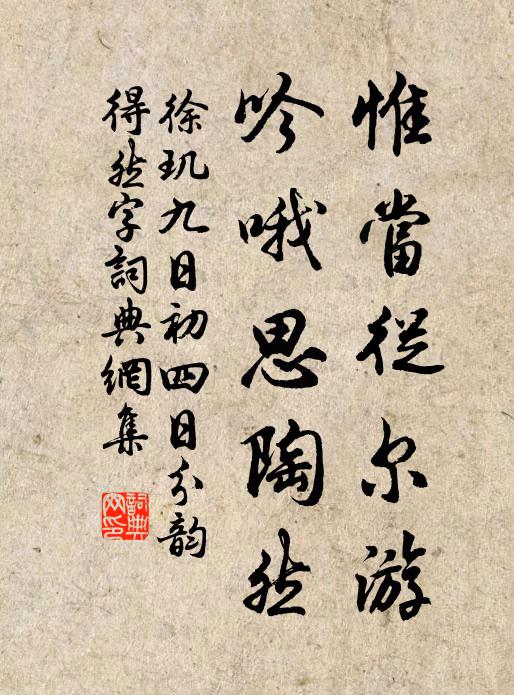 惟當從尔游
吟哦思陶然
徐玑九日初四日分韵
得然字詞典網集
詞典網印